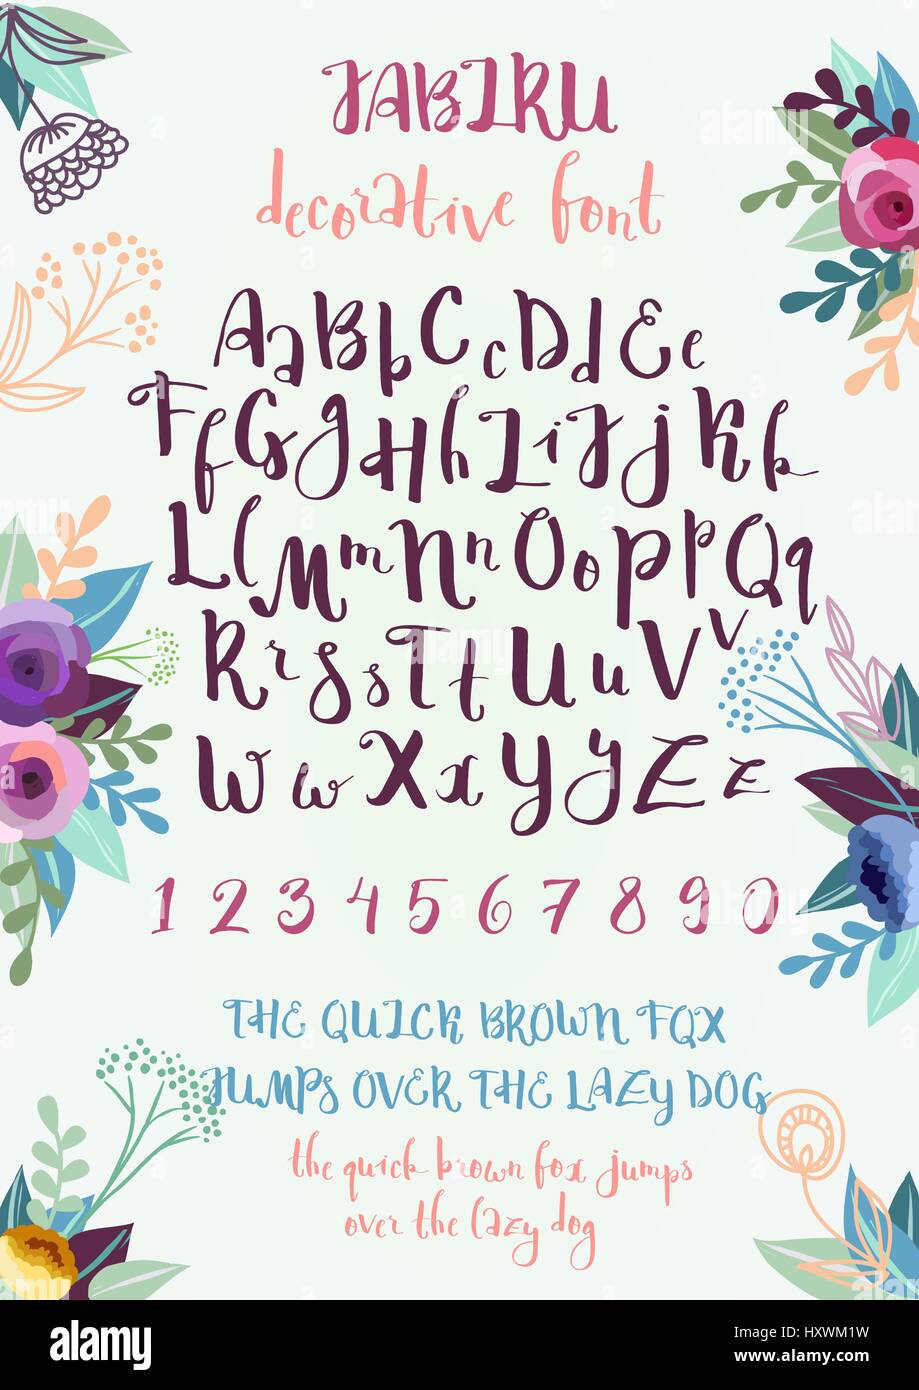 JABIRU
decorative font
AaBbCcDdEe
FfGgHhIiJjKk
LlMmNnOoPpQq
RrSsTtUuVv
WwXxYyZz
1234567890
THE QUICK BROWN FOX
JUMPS OVER THE LAZY DOG
the quick brown fox jumps
over the lazy dog
alamy
Image ID: HXWM1W
www.alamy.com